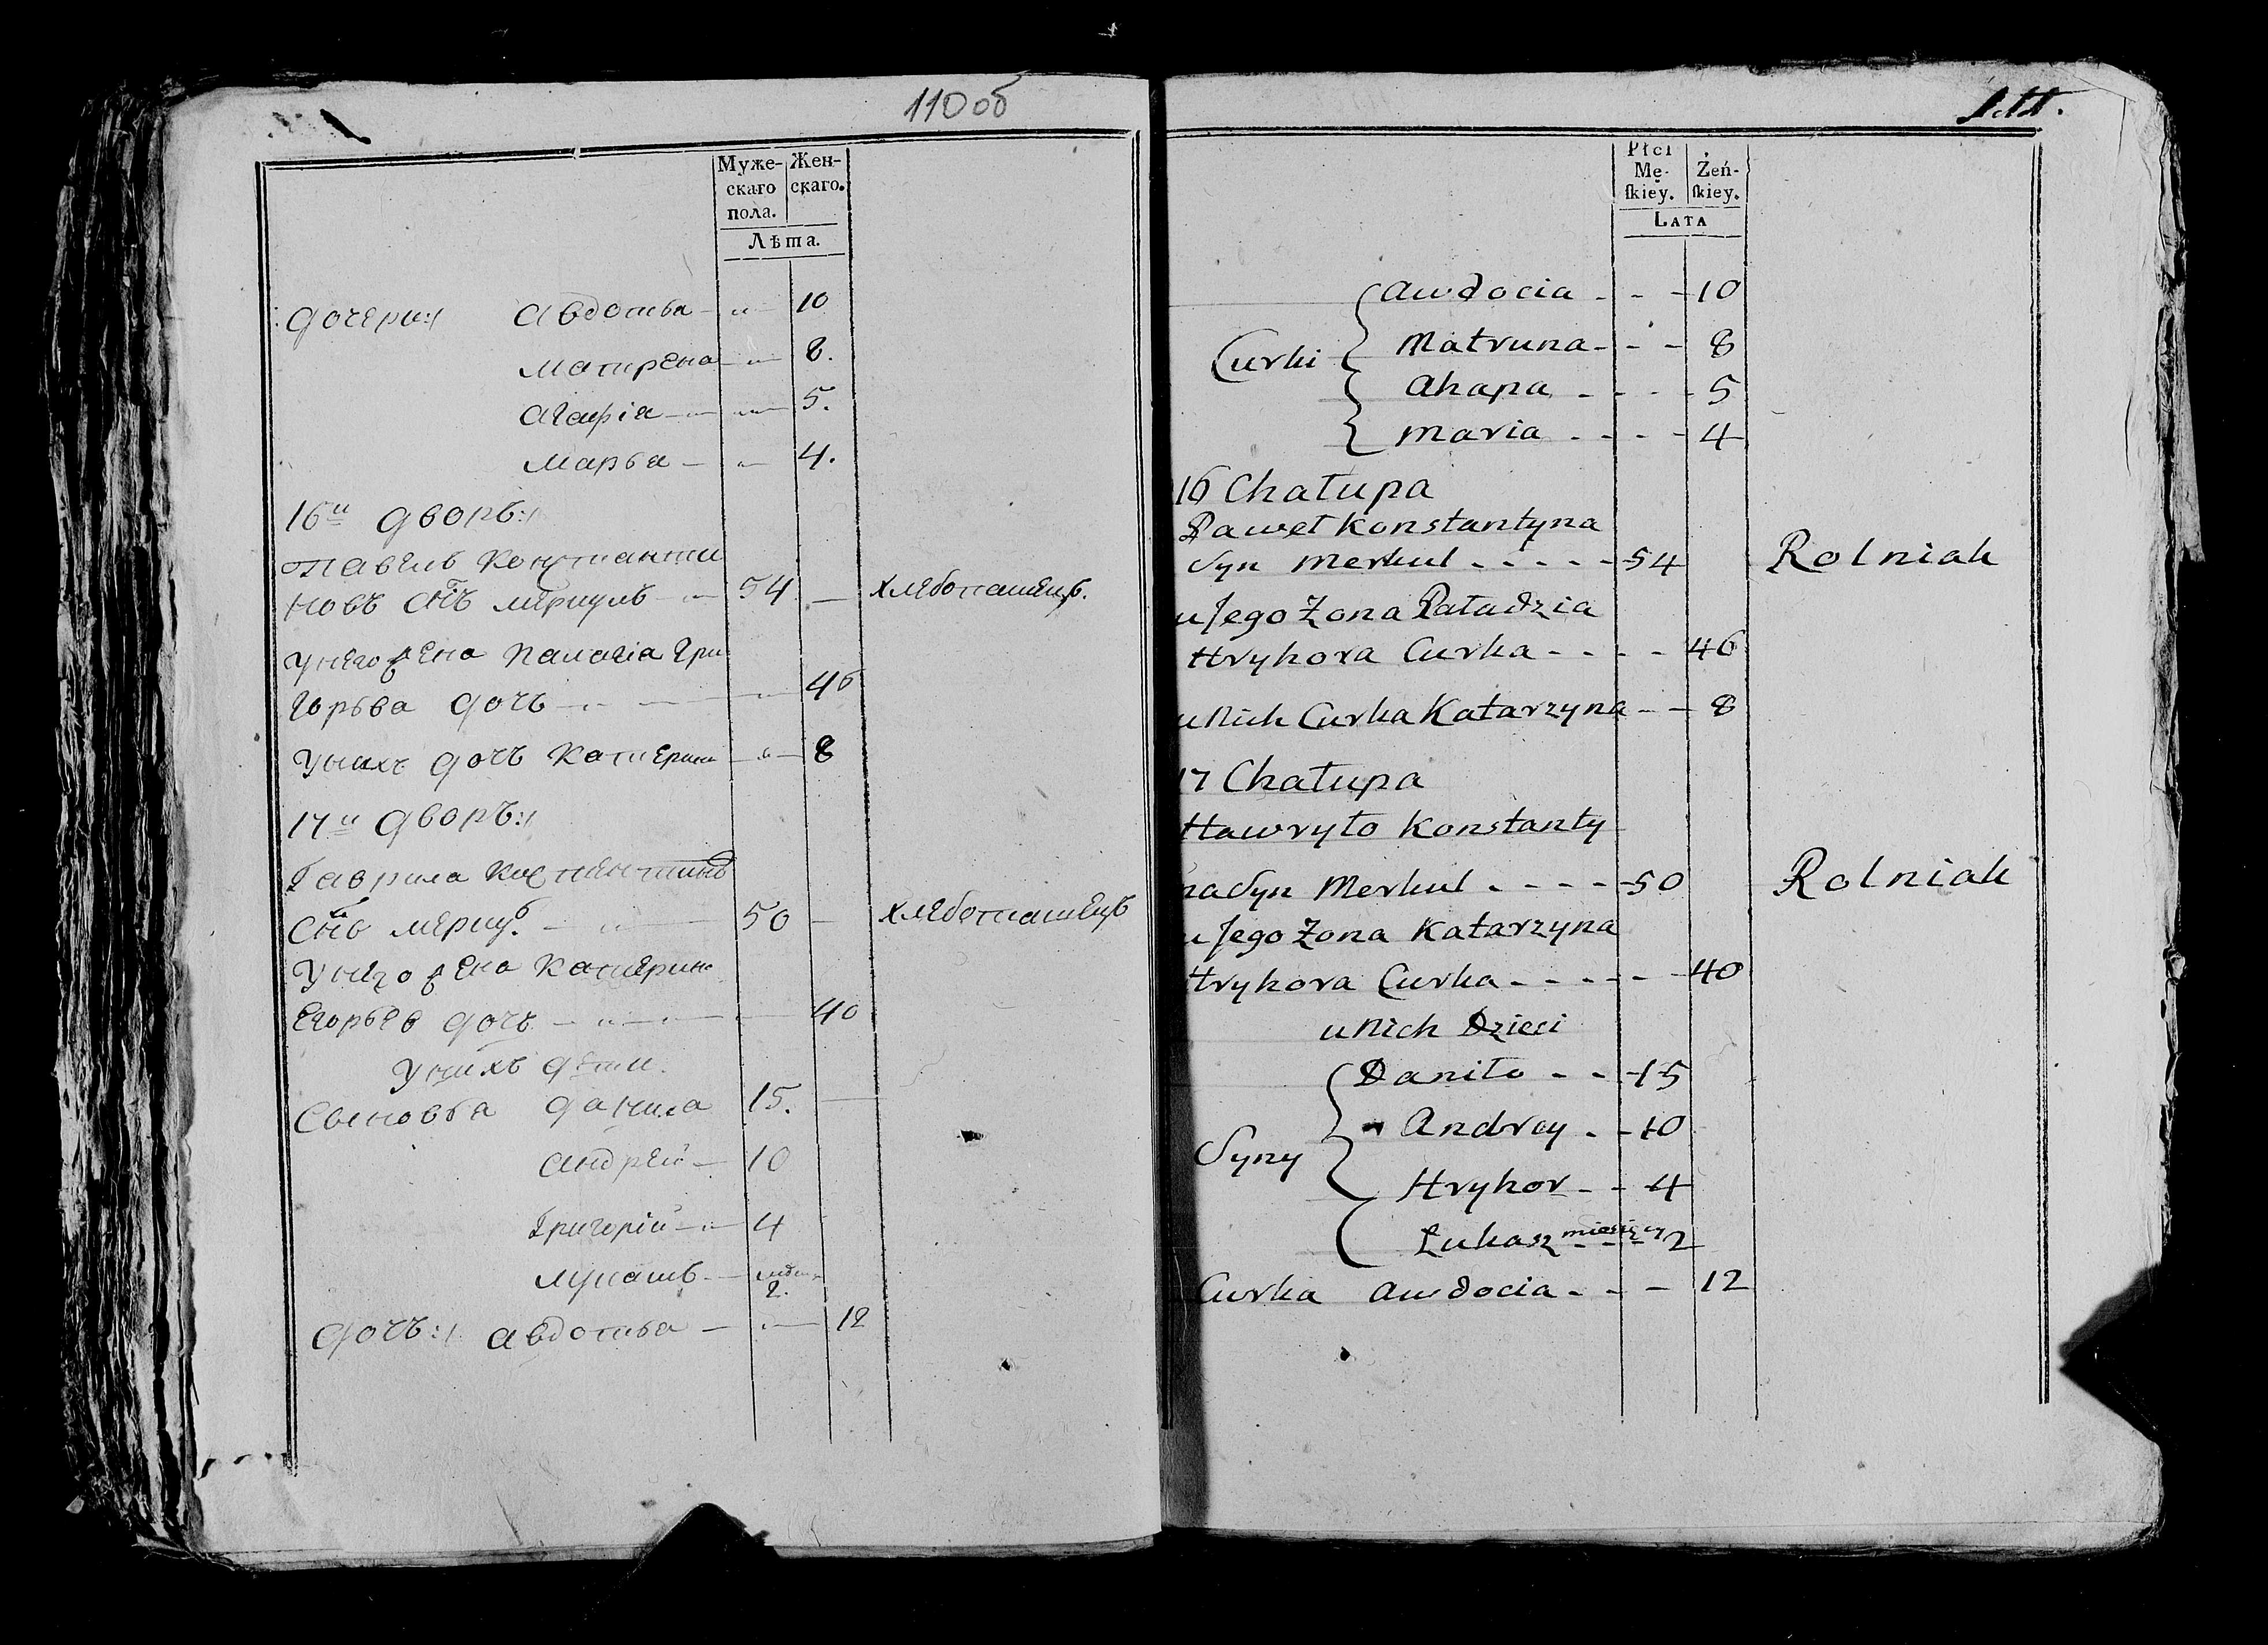 110 об
Муже- Жен-
скаго скаго.
пола.
Лѣта.
дочери: Авдотья 10
Матрена 8.
Агафіа 5.
Марья 4.
16й дворъ:
Павелъ Константи
новъ снъ Меркулъ 54 — хлебопашецъ.
У него жена Палагіа Гри
горьва дочь 46
У нихъ дочь Катерина 8
17й дворъ:
Гаврила Костентинъ
снъ Меркулъ 50 — хлебопашецъ
У него жена Катерина
Егорьев дочь 40
У нихъ дѣти.
Сыновья Данила 15.
Андрей 10
Григорій 4
Лукашъ
2.
дочь: Авдотья 12
Płci
Mę- Żeń-
ſkiey. ſkiey.
LATA
Awdocia - - - 10
Matruna - - - 8
Curki
Ahapa - - - - 5
Maria - - - - 4
16 Chałupa
Paweł Konstantyna
Syn Merkul - - - - - 54 Rolniak
u Jego Żona Paładzia
Hrykora Curka - - - - 46
u Nich Curka Katarzyna - - 8
17 Chałupa
Hawryło Konstanty
na Syn Merkul - - - - 50 Rolniak
u Jego Żona Katarzyna
Hrykora Curka - - - - - 40
u Nich Dzieci
Daniło - - 15
Andrey - - 10
Syny
Hrykor - - 4
Łukasz miesięcy 2
Curka Awdocia - - - 12